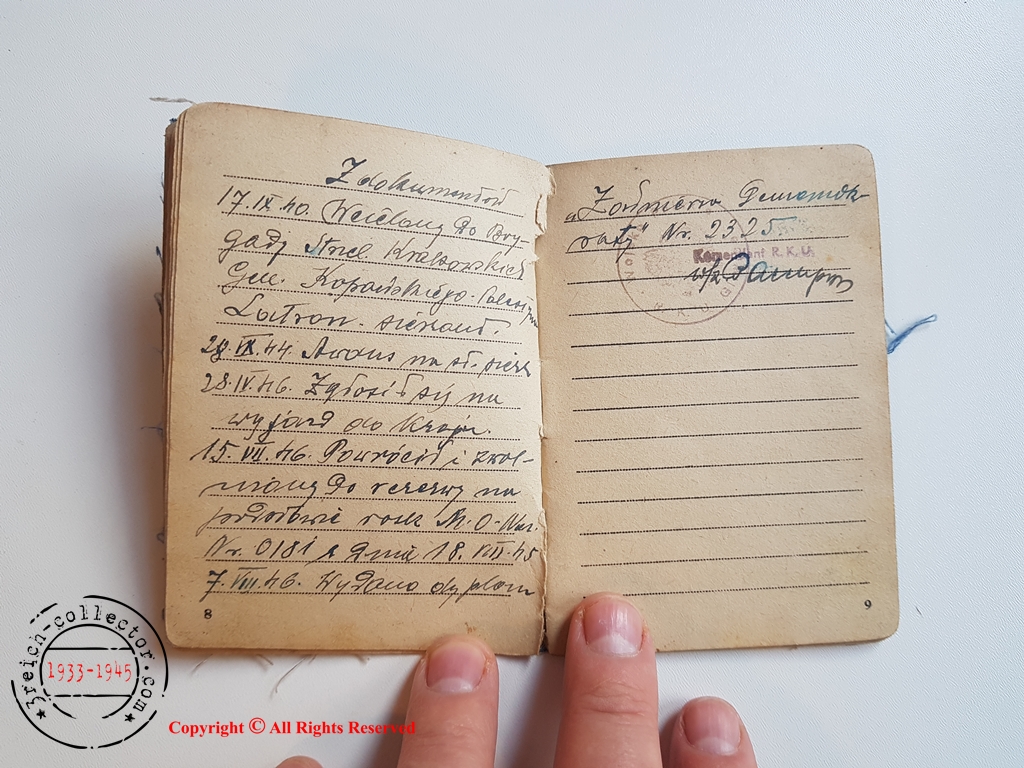 Z dokumentów
17.IX.40. Wcielony do Bry-
gady Strel Kraków
Gen. Kopańskiego.
28.IX.44. Awans na st.
28.IV.46. Zgłosił się na
wyjazd do Kraju.
15.VII.46. Powrócił i zwol-
niony do rezerwy na
podstwie rozk M.O-Nar.
Nr. 0181 z dnia 18.VIII.45
7.VIII.46. Wydano dyplom
8
„Żołnierza Demomok
raty" Nr. 2325
Komendant R.K.U.
R.K.U
9
3reich-collector.com
1933-1945
Copyright © All Rights Reserved